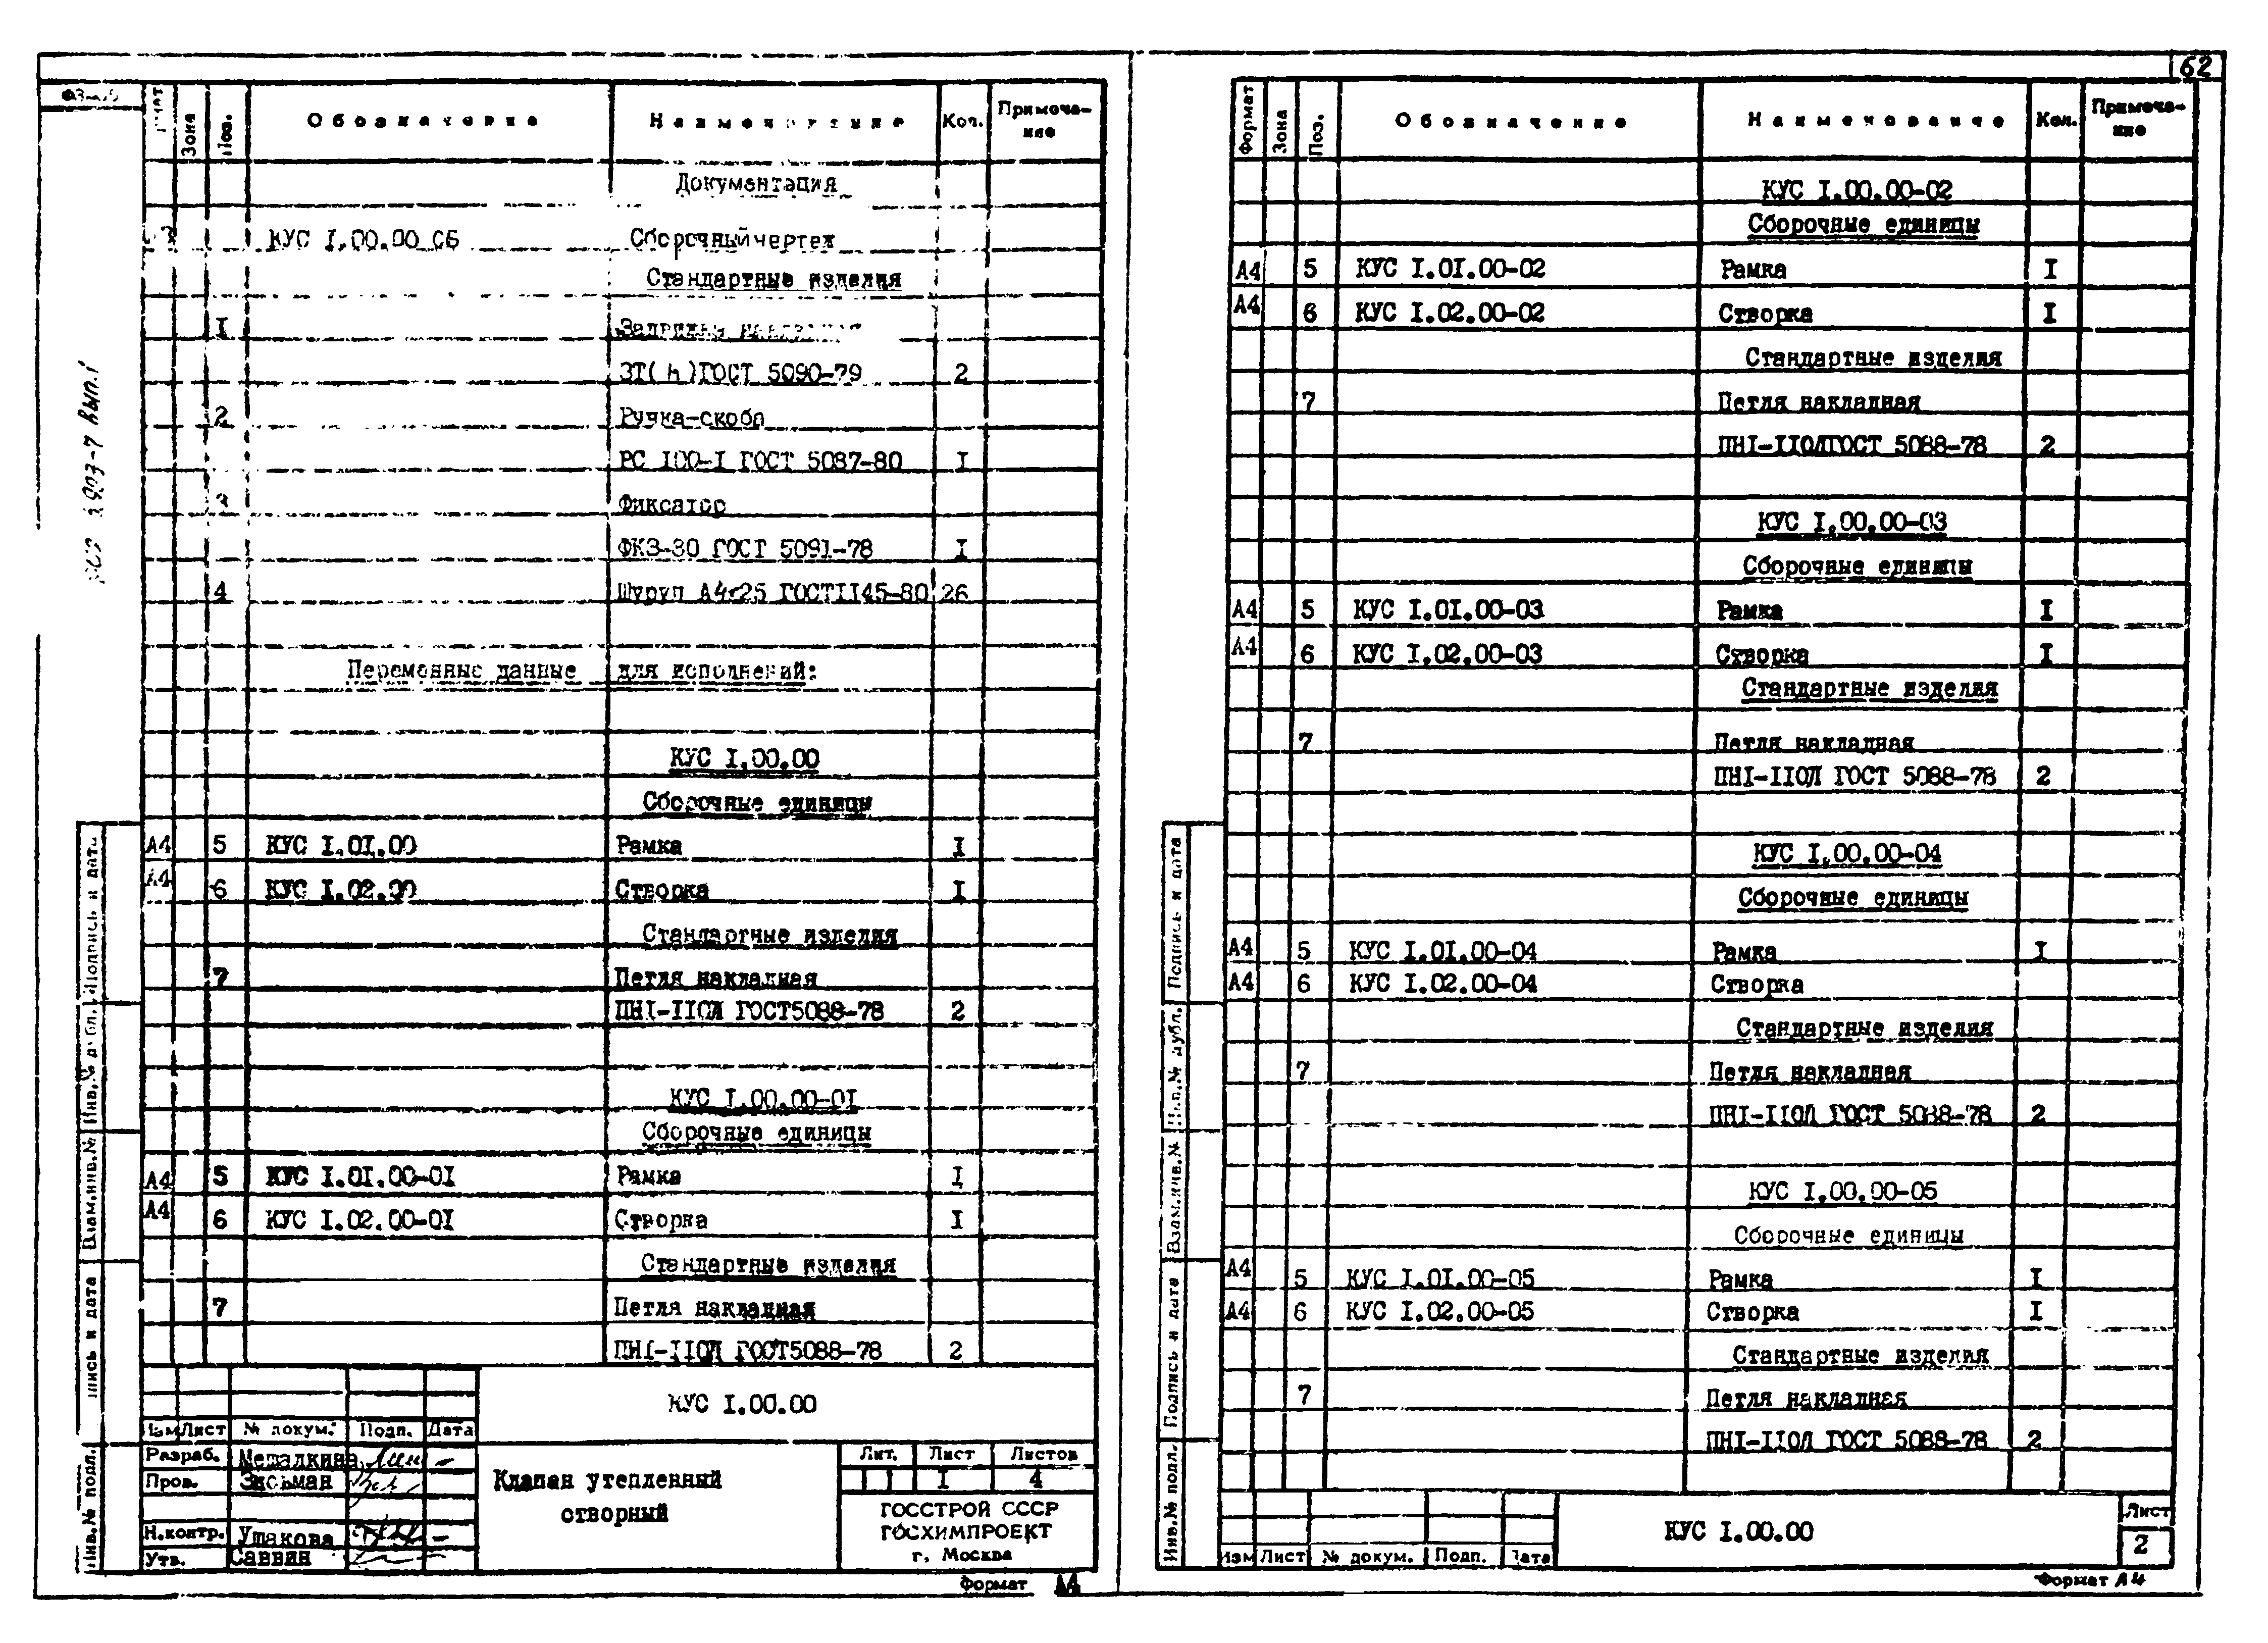 62
Зона Поз. Обозначение Наименование Кол. Примеча-
ние
Документация
КУС I.00.00 СБ Сборочный чертеж
Стандартные изделия
I
ЗТ( )ГОСТ 5090-79 2
2 Ручка-скоба
РС 100-I ГОСТ 5087-80 I
3 Фиксатор
ФК3-80 ГОСТ 5091-78 I
4 Шуруп А4х25 ГОСТII45-80 26
Переменные данные для исполнений:
КУС I.00.00
Сборочные единицы
А4 5 КУС I.0I.00 Рамка I
А4 6 КУС I.02.00 Створка I
Стандартные изделия
7 Петля накладная
ПНI-II0Л ГОСТ5088-78 2
КУС I.00.00-0I
Сборочные единицы
А4 5 КУС I.0I.00-0I Рамка I
А4 6 КУС I.02.00-0I Створка I
Стандартные изделия
7 Петля накладная
ПНI-II0Л ГОСТ5088-78 2
Подпись и дата
Инв.№ дубл.
Взам.инв.№
Инв.№ подл.
КУС I.00.00
Изм Лист № докум. Подп. Дата
Разраб. Мешалкина
Пров.
Н.контр. Ушакова
Утв. Саввин
Клапан утепленный
створный
Лит. Лист Листов
I 4
ГОССТРОЙ СССР
ГОСХИМПРОЕКТ
г. Москва
Формат А4
Формат Зона Поз. Обозначение Наименование Кол. Примеча-
ние
КУС I.00.00-02
Сборочные единицы
А4 5 КУС I.0I.00-02 Рамка I
А4 6 КУС I.02.00-02 Створка I
Стандартные изделия
7 Петля накладная
ПНI-II0ЛГОСТ 5088-78 2
КУС I.00.00-03
Сборочные единицы
А4 5 КУС I.0I.00-03 Рамка I
А4 6 КУС I.02.00-03 Створка I
Стандартные изделия
7 Петля накладная
ПНI-II0Л ГОСТ 5088-78 2
КУС I.00.00-04
Сборочные единицы
А4 5 КУС I.0I.00-04 Рамка I
А4 6 КУС I.02.00-04 Створка
Стандартные изделия
7 Петля накладная
ПНI-II0Л ГОСТ 5088-78 2
КУС I.00.00-05
Сборочные единицы
А4 5 КУС I.0I.00-05 Рамка I
А4 6 КУС I.02.00-05 Створка I
Стандартные изделия
7 Петля накладная
ПНI-II0Л ГОСТ 5088-78 2
Подпись и дата
Инв.№ дубл.
Взам.инв.№
Подпись и дата
Инв.№ подл.
Изм Лист № докум. Подп. Дата
КУС I.00.00
Лист
2
Формат А4